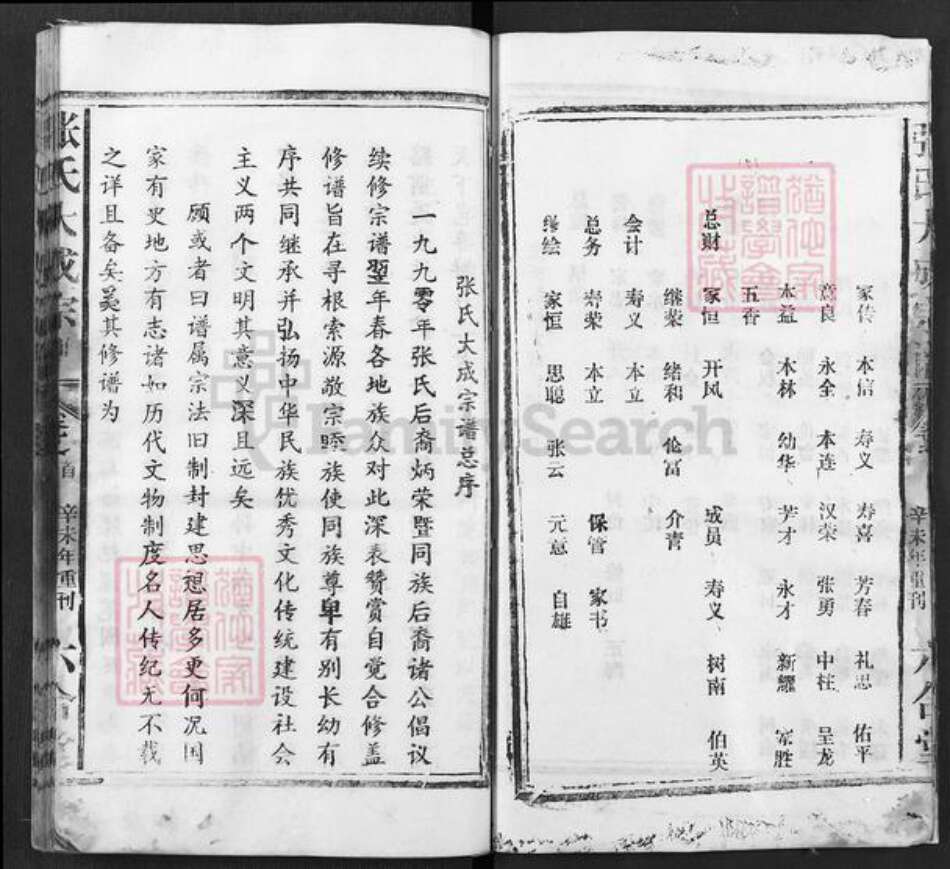 家传 本信 寿义 寿喜 芳春 礼思 佑平
意良 永全 本连 汉荣 张勇 中柱 呈龙
本益 本林 幼华 芳才 永才 新耀 家胜
五香
总财 家恒 开风 成员 寿义 树南 伯英
继荣 绪和 伦富 介青
会计 寿义 本立
总务 本立 保管 家书
家恒 思聪 张云 元意 自雄
六合堂
辛未年重刊
张氏大成宗谱总序
一九九零年张氏后裔炳荣暨同族后裔诸公倡议
续修宗谱翌年春各地族众对此深表赞赏自觉合修盖
修谱旨在寻根索源敬宗睦族使同族尊卑有别长幼有
序共同继承并弘扬中华民族优秀文化传统建设社会
主义两个文明其意义深且远矣
顾或者曰谱属宗法旧制封建思想居多更何况国
家有史地方有志诸如历代文物制度名人传纪无不载
之详且备矣奚其修谱为
张氏大成宗谱 卷之首 辛未年重刊 六合堂
FamilySearch